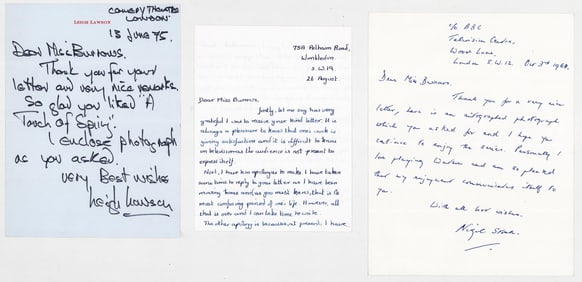 LEIGH LAWSON
COMEDY THEATRE
LONDON
13 JUNE 75.
Dear Miss Burrows.
Thank you for your
letter and very nice remarks.
So glad you liked "A
Touch of Spring".
I enclose photograph
as you asked.
very Best wishes
Leigh Lawson
75A Pelham Road,
Wimbledon.
S.W.19.
26 August.
Dear Miss Burrows,
firstly, let me say how very
grateful I was to receive your kind letter. It is
always a pleasure to know that one's work is
giving satisfaction and it is difficult to know
on television as the audience is not present to
express itself.
Next, I have two apologies to make. I have taken
some time to reply to your letter as I have been
moving home and, as you must know, that is the
most confusing period of one's life. However, all
that is over and I can take time to write.
The other apology is because, at present, I have
c/o ABC
Television Centre,
London S.W.12. Oct 3rd
Dear Miss Burrows,
Thank you for a very nice
letter, here is an autographed photograph
which you asked for and I hope you
continue to enjoy the series. Personally I
love playing and am so pleased
that my enjoyment communicates itself to
you.
With all best wishes.
Nigel Stock